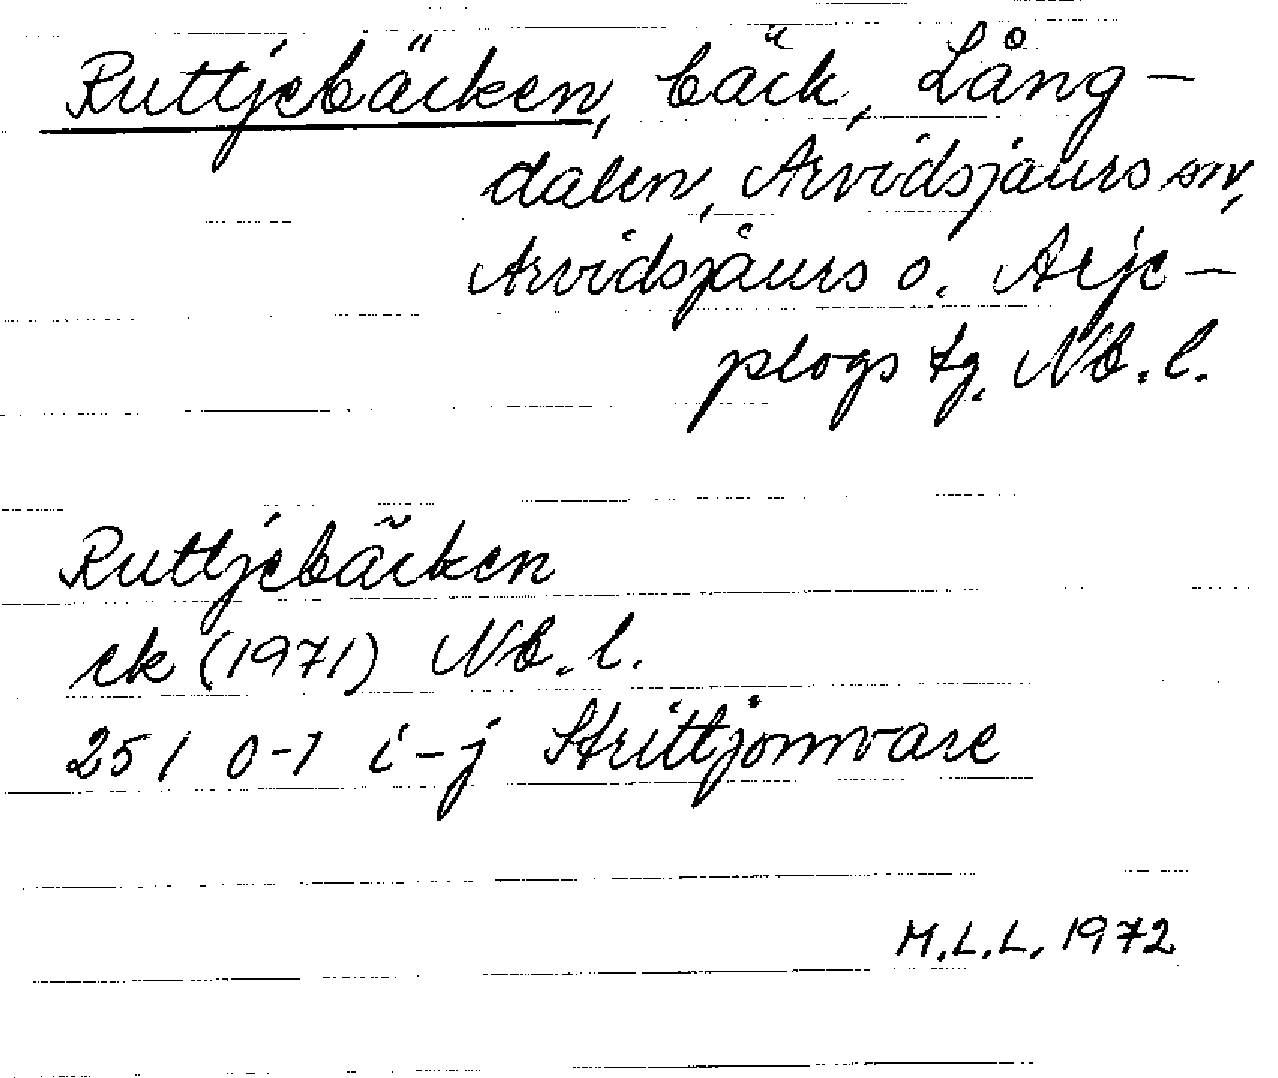 Ruttjebäcken, bäck, Lång-
dalen, Arvidsjaurs sn,
Arvidsjaurs o. Arje-
plogs tg. Nb. l.
Ruttjebäcken
ek (1971) Nb. l.
25 I 0-1 i-j Strittjomvare
M.L.L. 1972